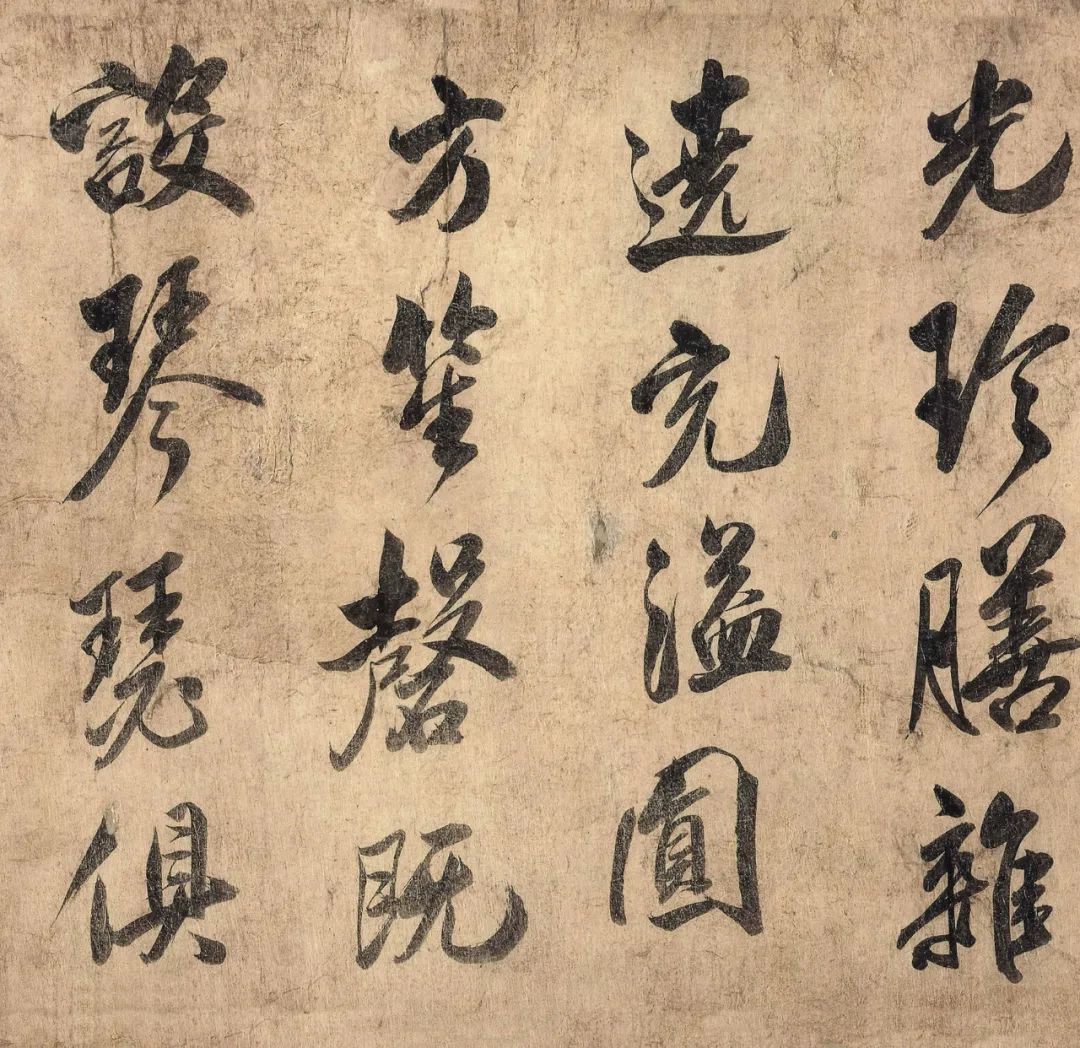 光珍膳雜
遶充溢圓
方笙磬既
設琴瑟俱